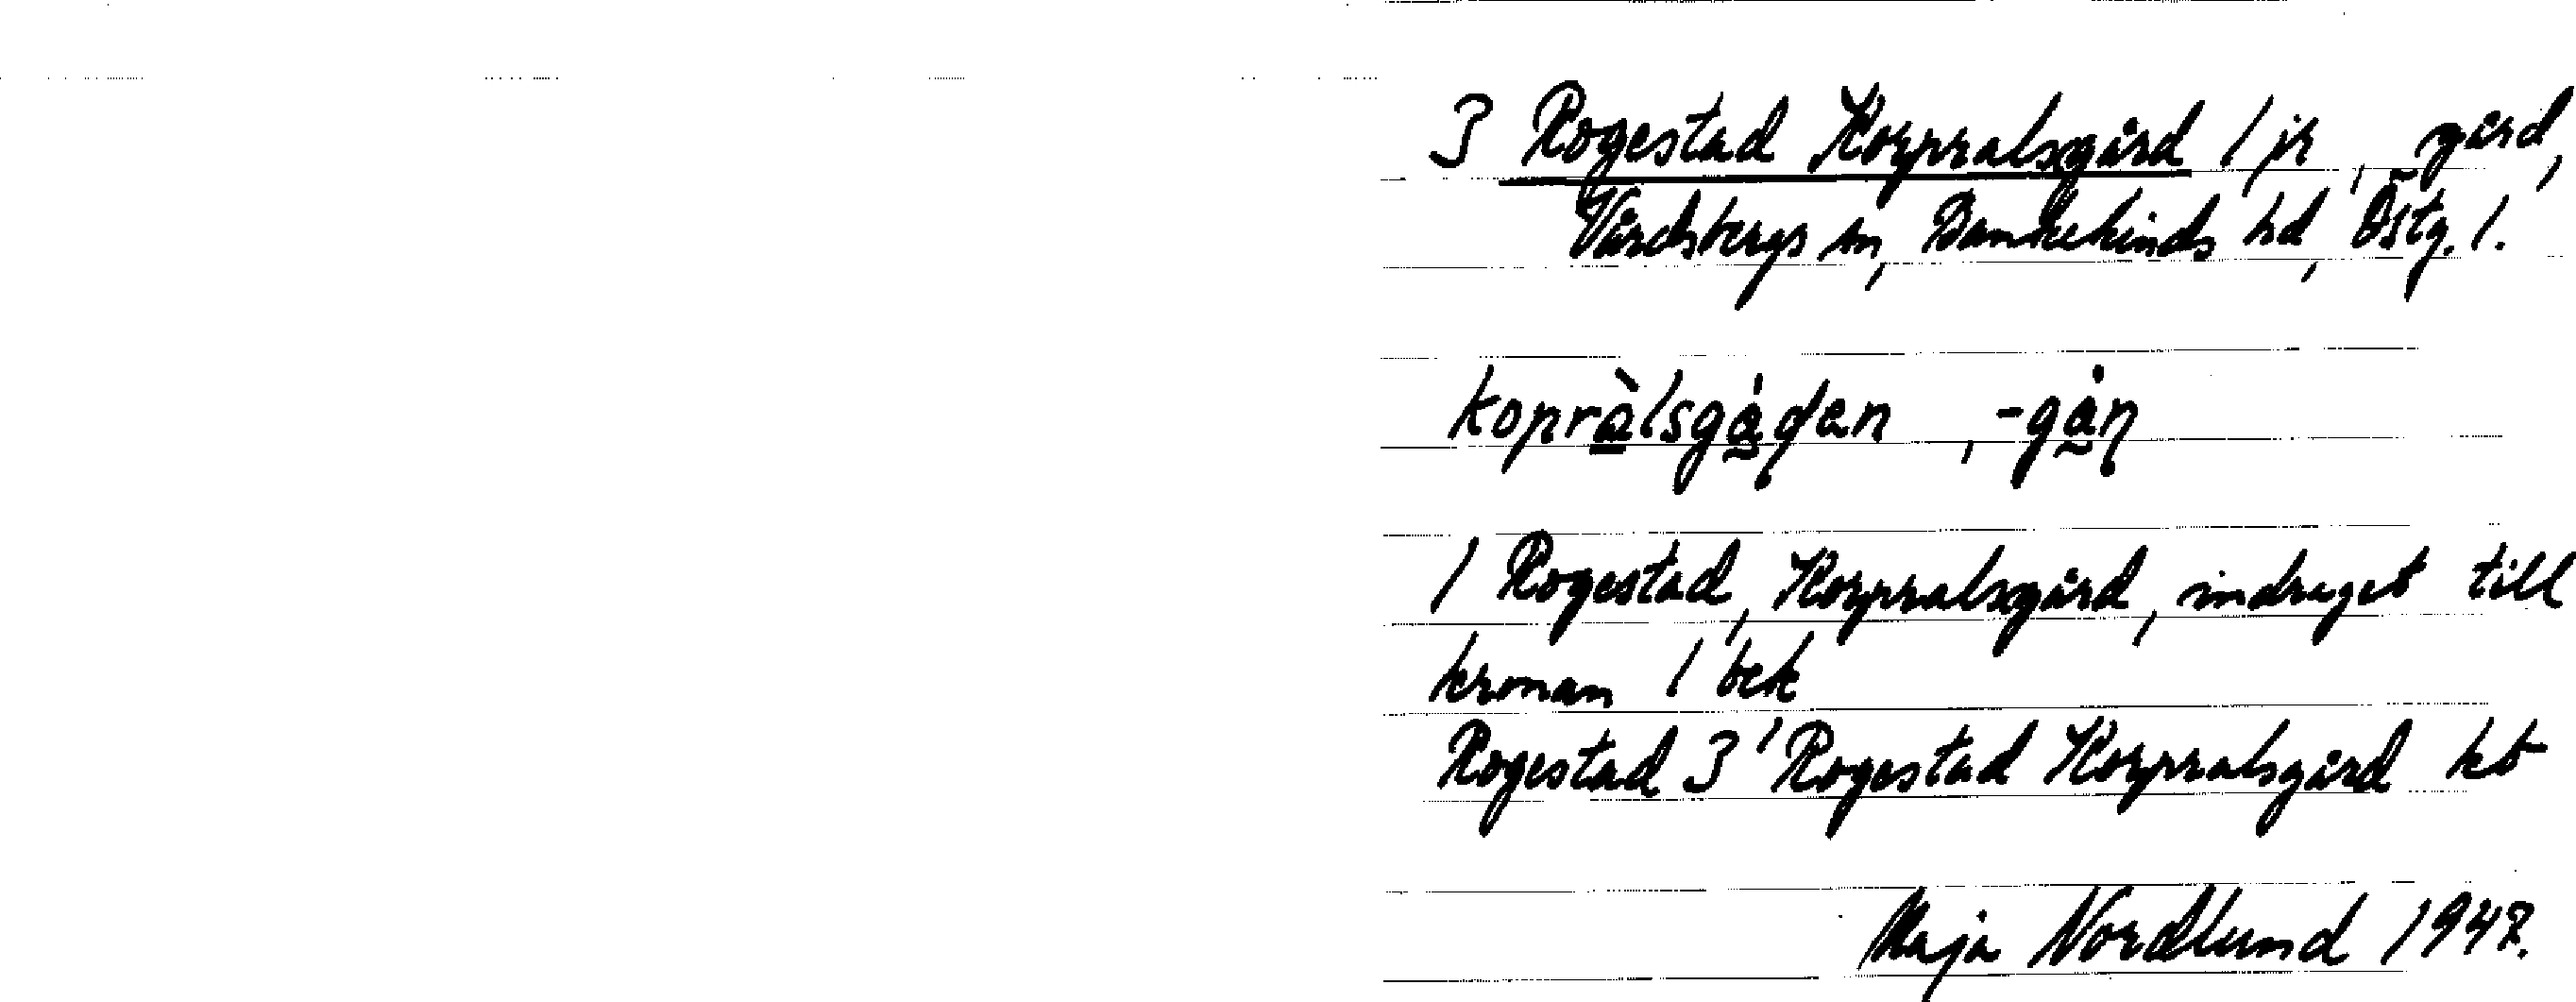 3 Rogestad Korpralsgård / jr, gård,
Vårdsbergs sn, Bankekinds hd, Östg. l.
kopràlsgǻḍen, -gåṇ
1 Rogestad, Korpralsgård, indraget till
kronan 1 bek
Rogestad 3¹ Rogestad Korpralsgård kb
Maja Nordlund 1947.